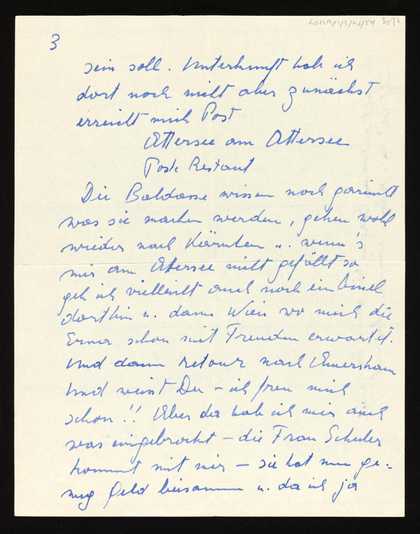 3
sein soll. Unterkunft hab ich
dort noch nicht aber zunächst
erreicht mich Post
Attersee am Attersee
Poste Restant
Die Baldasse wissen noch garnicht
was sie machen werden, gehen wohl
wieder nach Kärnten u. wenn's
mir am Attersee nicht gefällt so
geh ich vielleicht auch noch ein bissel
dorthin u. dann Wien wo mich die
Erna schon mit Freuden erwartet.
Und dann retour nach Amersham
Und weisst Du – ich freu mich
schon!! Aber da hab ich mir auch
was eingebrockt – die Frau Schuler
kommt mit mir – sie hat nun ge-
nug Geld beisamm u. da ich ja